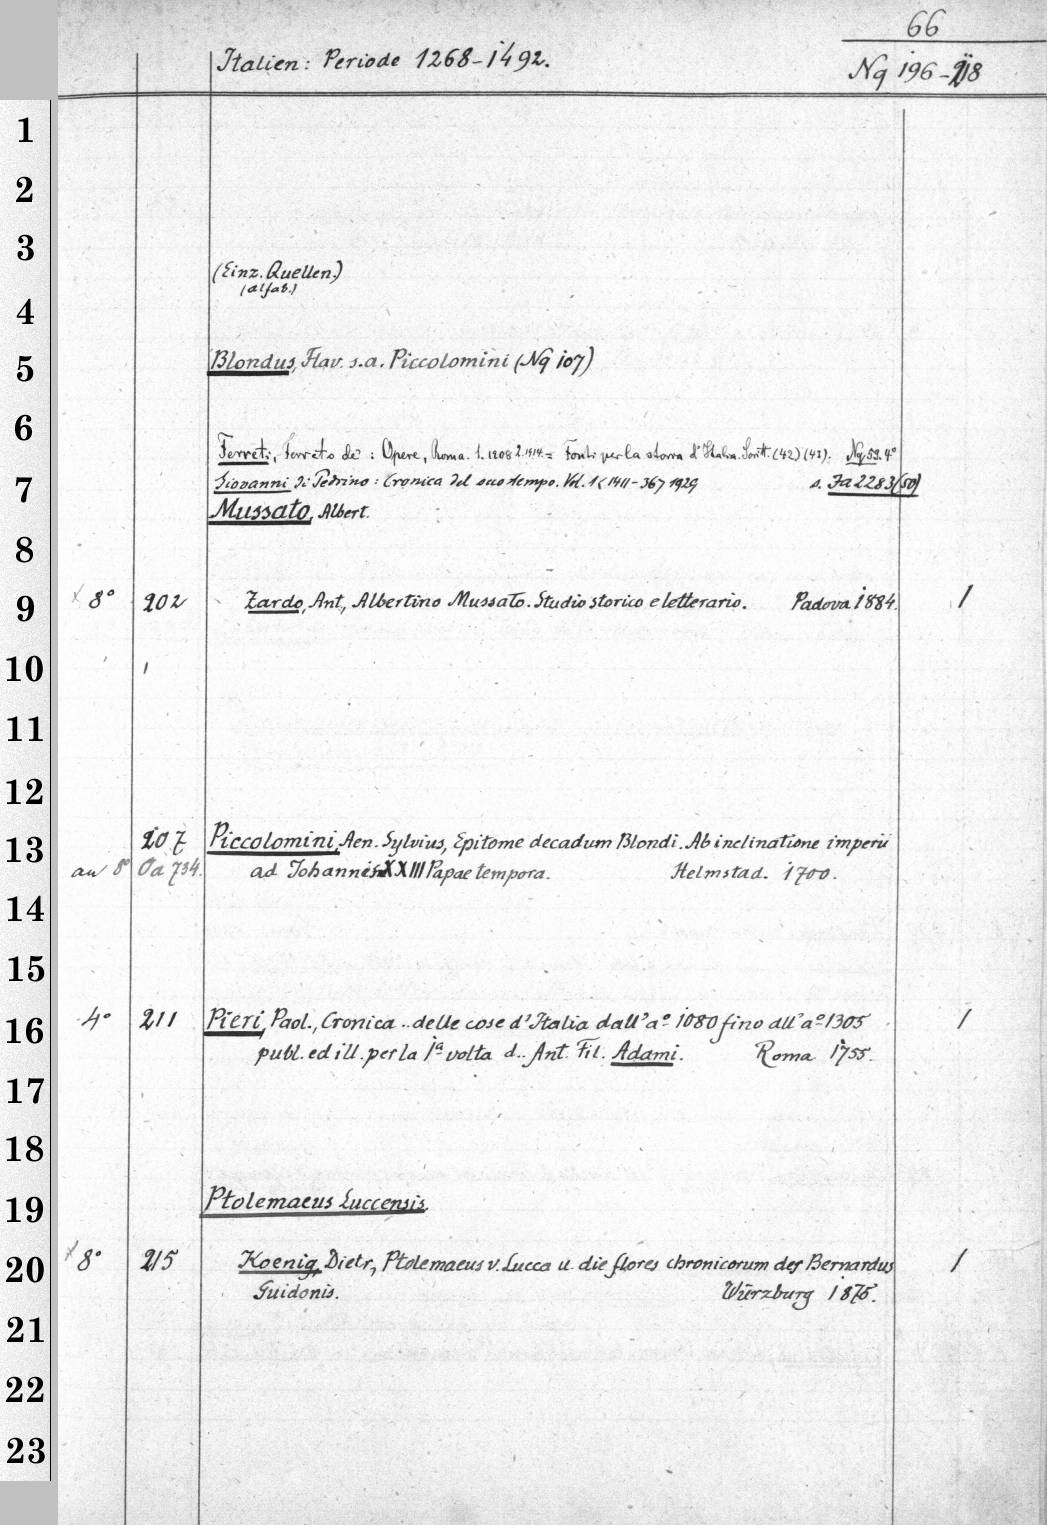 66
Italien: Periode 1268-1492.
Nq 196-218
1
2
3
(Einz. Quellen.)
(alfab.)
4
5 Blondus, Flav. s.a. Piccolomini (Nq 107)
6
Ferreti, Ferreto de: Opere, Roma. 1. 1908 2. 1914. = Fonti per la storia d'Italia. Scritt. (42) (43). Nq 59. 4°
7 Giovanni di Pedrino: Cronica del suo tempo. Vol. 1 < 1411-36> 1929 s. Fa 2283 (50)
Mussato, Albert.
8
9 8° 202 Zardo, Ant., Albertino Mussato. Studio storico e letterario. Padova 1884. 1
10
11
12
13 207 Piccolomini, Aen. Sylvius, Epitome decadum Blondi. Ab inclinatione imperii
an 8° Oa 734. ad Johannis XXIII Papae tempora. Helmstad. 1700.
14
15
16 4° 211 Pieri, Paol., Cronica .. delle cose d'Italia dall' a° 1080 fino all' a° 1305 1
publ. ed ill. per la 1a volta d.. Ant. Fil. Adami. Roma 1755.
17
18
19 Ptolemaeus Luccensis.
20 8° 215 Koenig, Dietr., Ptolemaeus v. Lucca u. die flores chronicorum des Bernardus 1
Guidonis. Würzburg 1875.
21
22
23